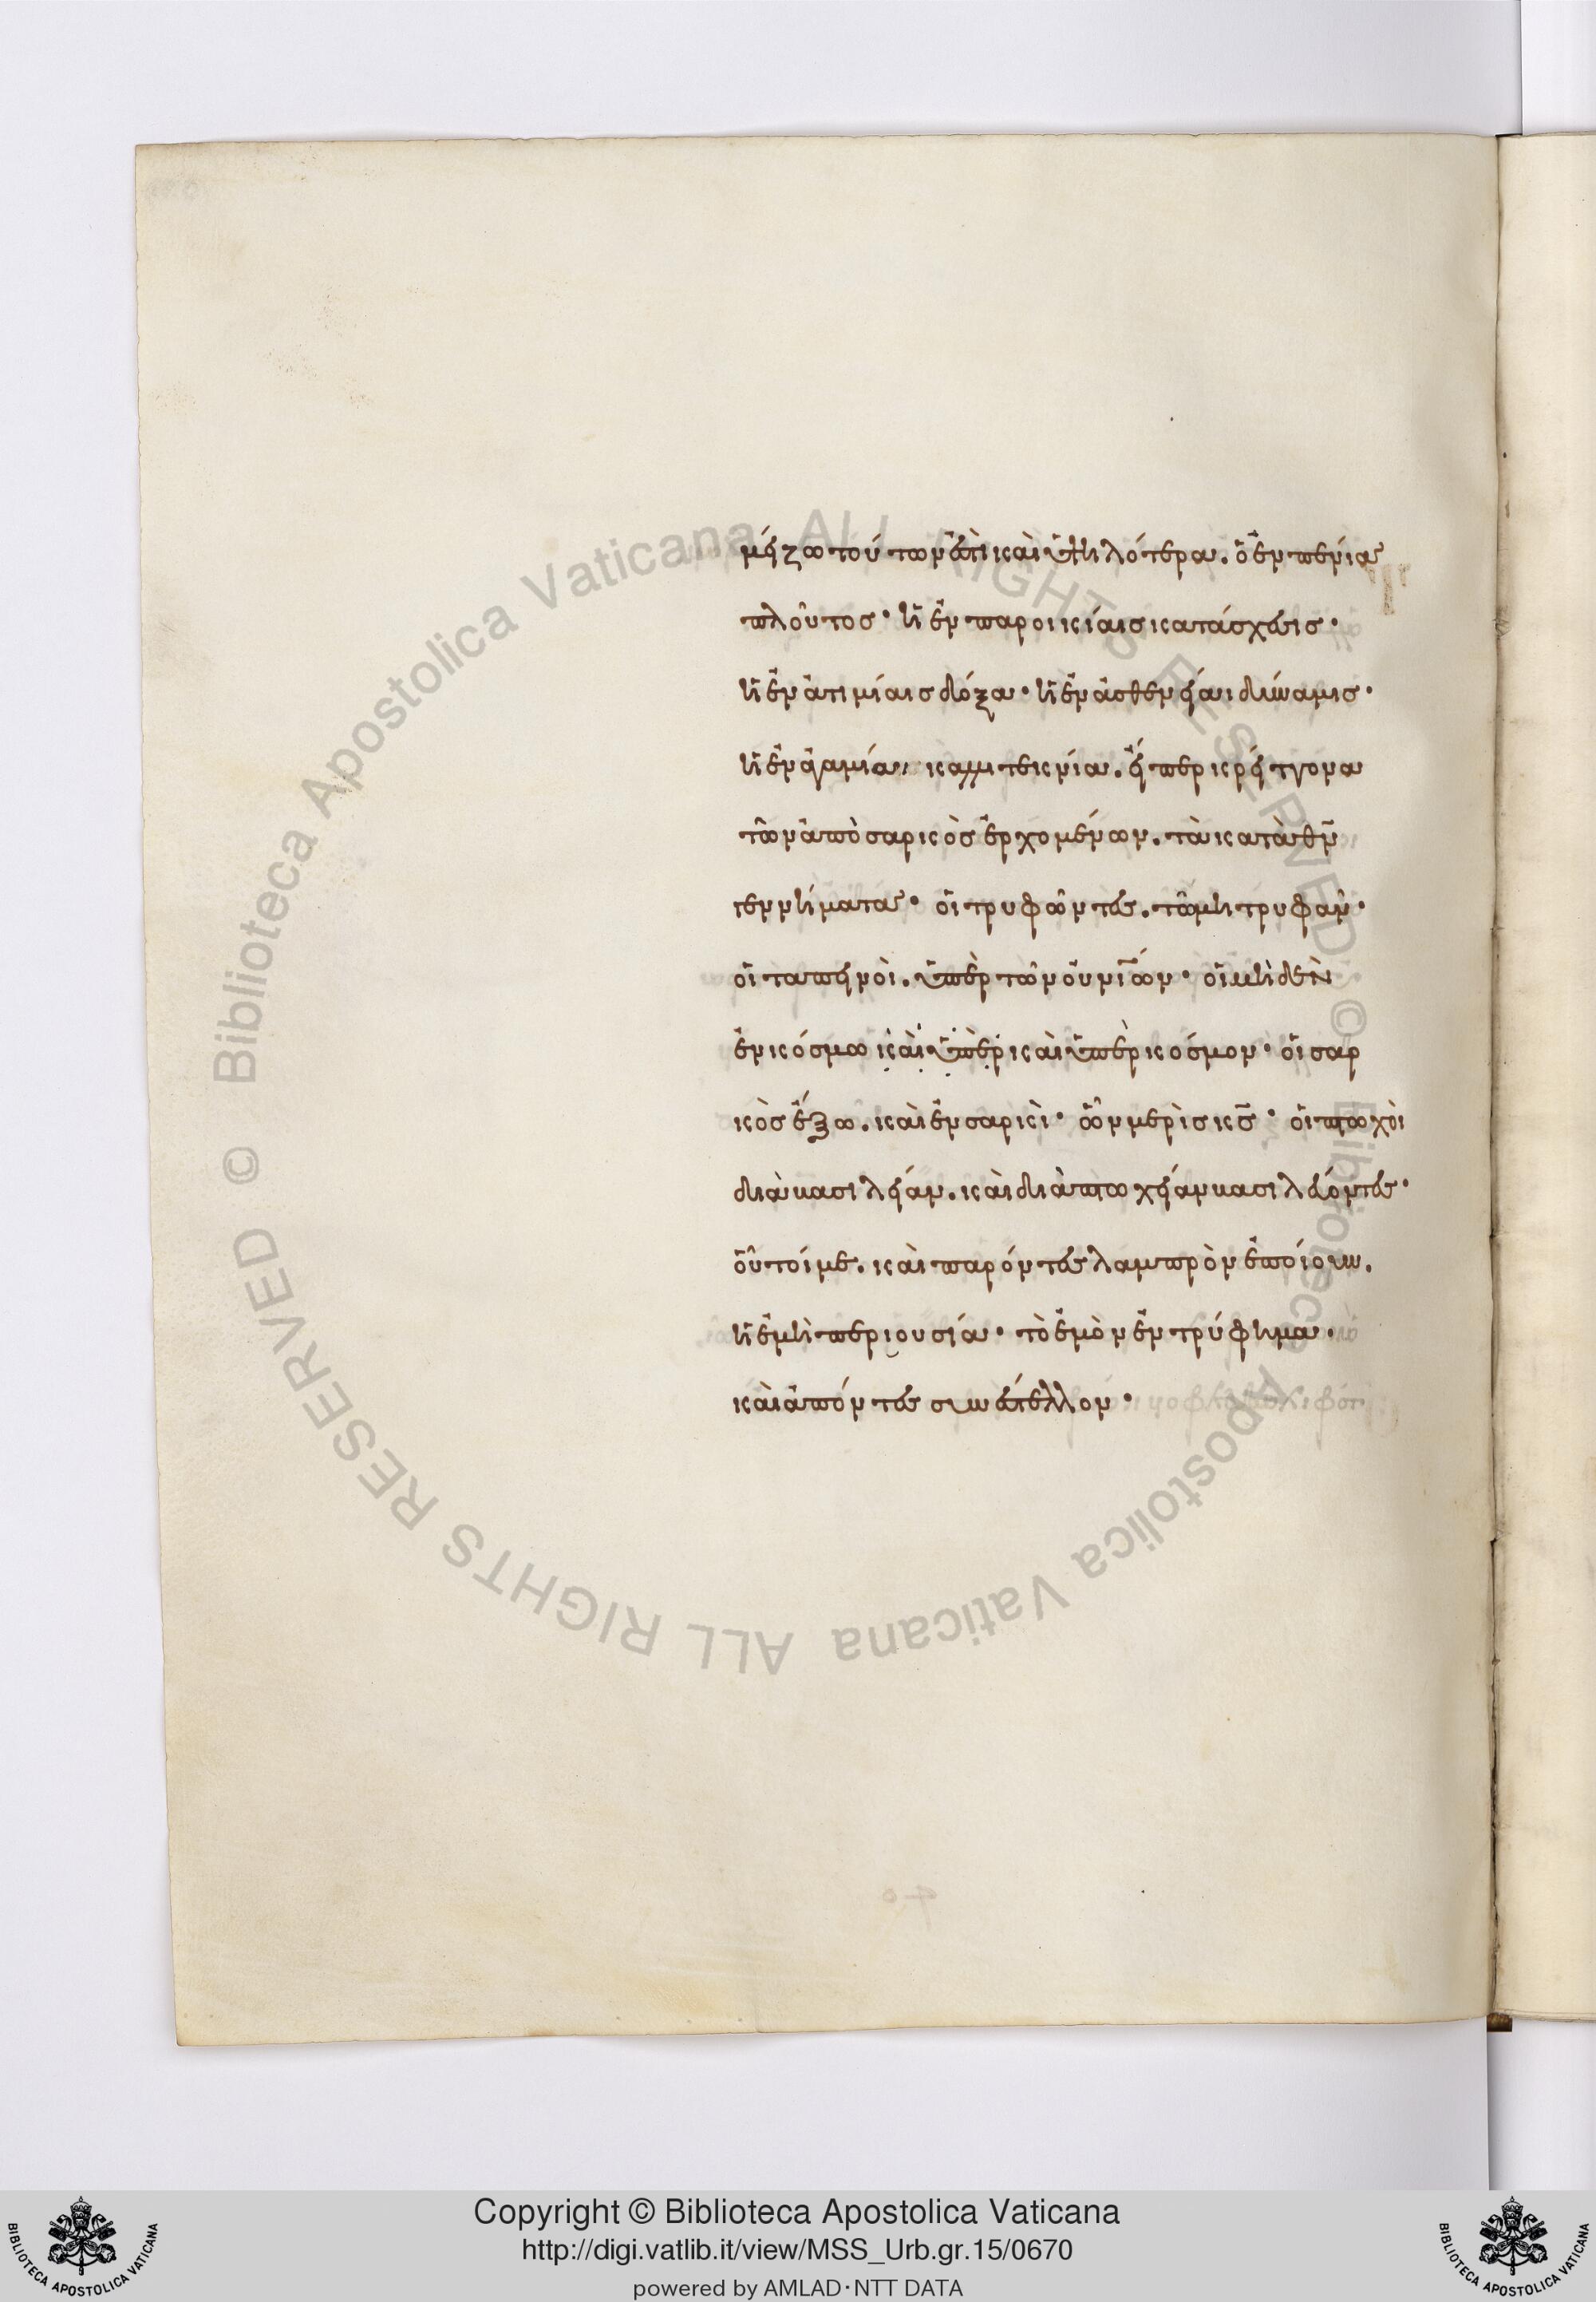 μείζω τούτων ἐστὶ καὶ ὑψηλότερα. ὁ ἐν πενία
πλοῦτος· ἡ ἐν παροικίαις κατάσχεσις·
ἡ ἐν ἀτιμίαις δόξα· ἡ ἐν ἀσθενείαι δύναμις·
ἡ ἐν ἀγαμία καλλιτεκνία. εἴπερ κρείττονα
τῶν ἀπὸ σαρκὸς ἐρχομένων. τὰ κατὰ θν
γεννήματα· οἱ τρυφῶντες. τῶ μὴ τρυφᾶν·
οἱ ταπεινοὶ. ὑπὲρ τῶν οὐνίων· οἱ μηδὲν
ἐν κόσμω καὶ ὑπὲρ καὶ ὑπὲρ κόσμον· οἱ σαρ
κὸς ἔξω. καὶ ἐν σαρκὶ· ὧν μερὶς κς· οἱ πτωχοὶ
διὰ βασιλείαν. καὶ διὰ πτωχείαν βασιλεύοντες·
οὗτοί με. καὶ παρόντες λαμπρὸν ἐποίουν.
ἡ ἐμὴ περιουσία· τὸ ἐμὸν ἐντρύφημα·
καὶ ἀπόντες συνέστελλον·
Copyright © Biblioteca Apostolica Vaticana
http://digi.vatlib.it/view/MSS_Urb.gr.15/0670
powered by AMLAD·NTT DATA
BIBLIOTECA APOSTOLICA VATICANA
BIBLIOTECA APOSTOLICA VATICANA
© Biblioteca Apostolica Vaticana ALL RIGHTS RESERVED © Biblioteca Apostolica Vaticana ALL RIGHTS RESERVED